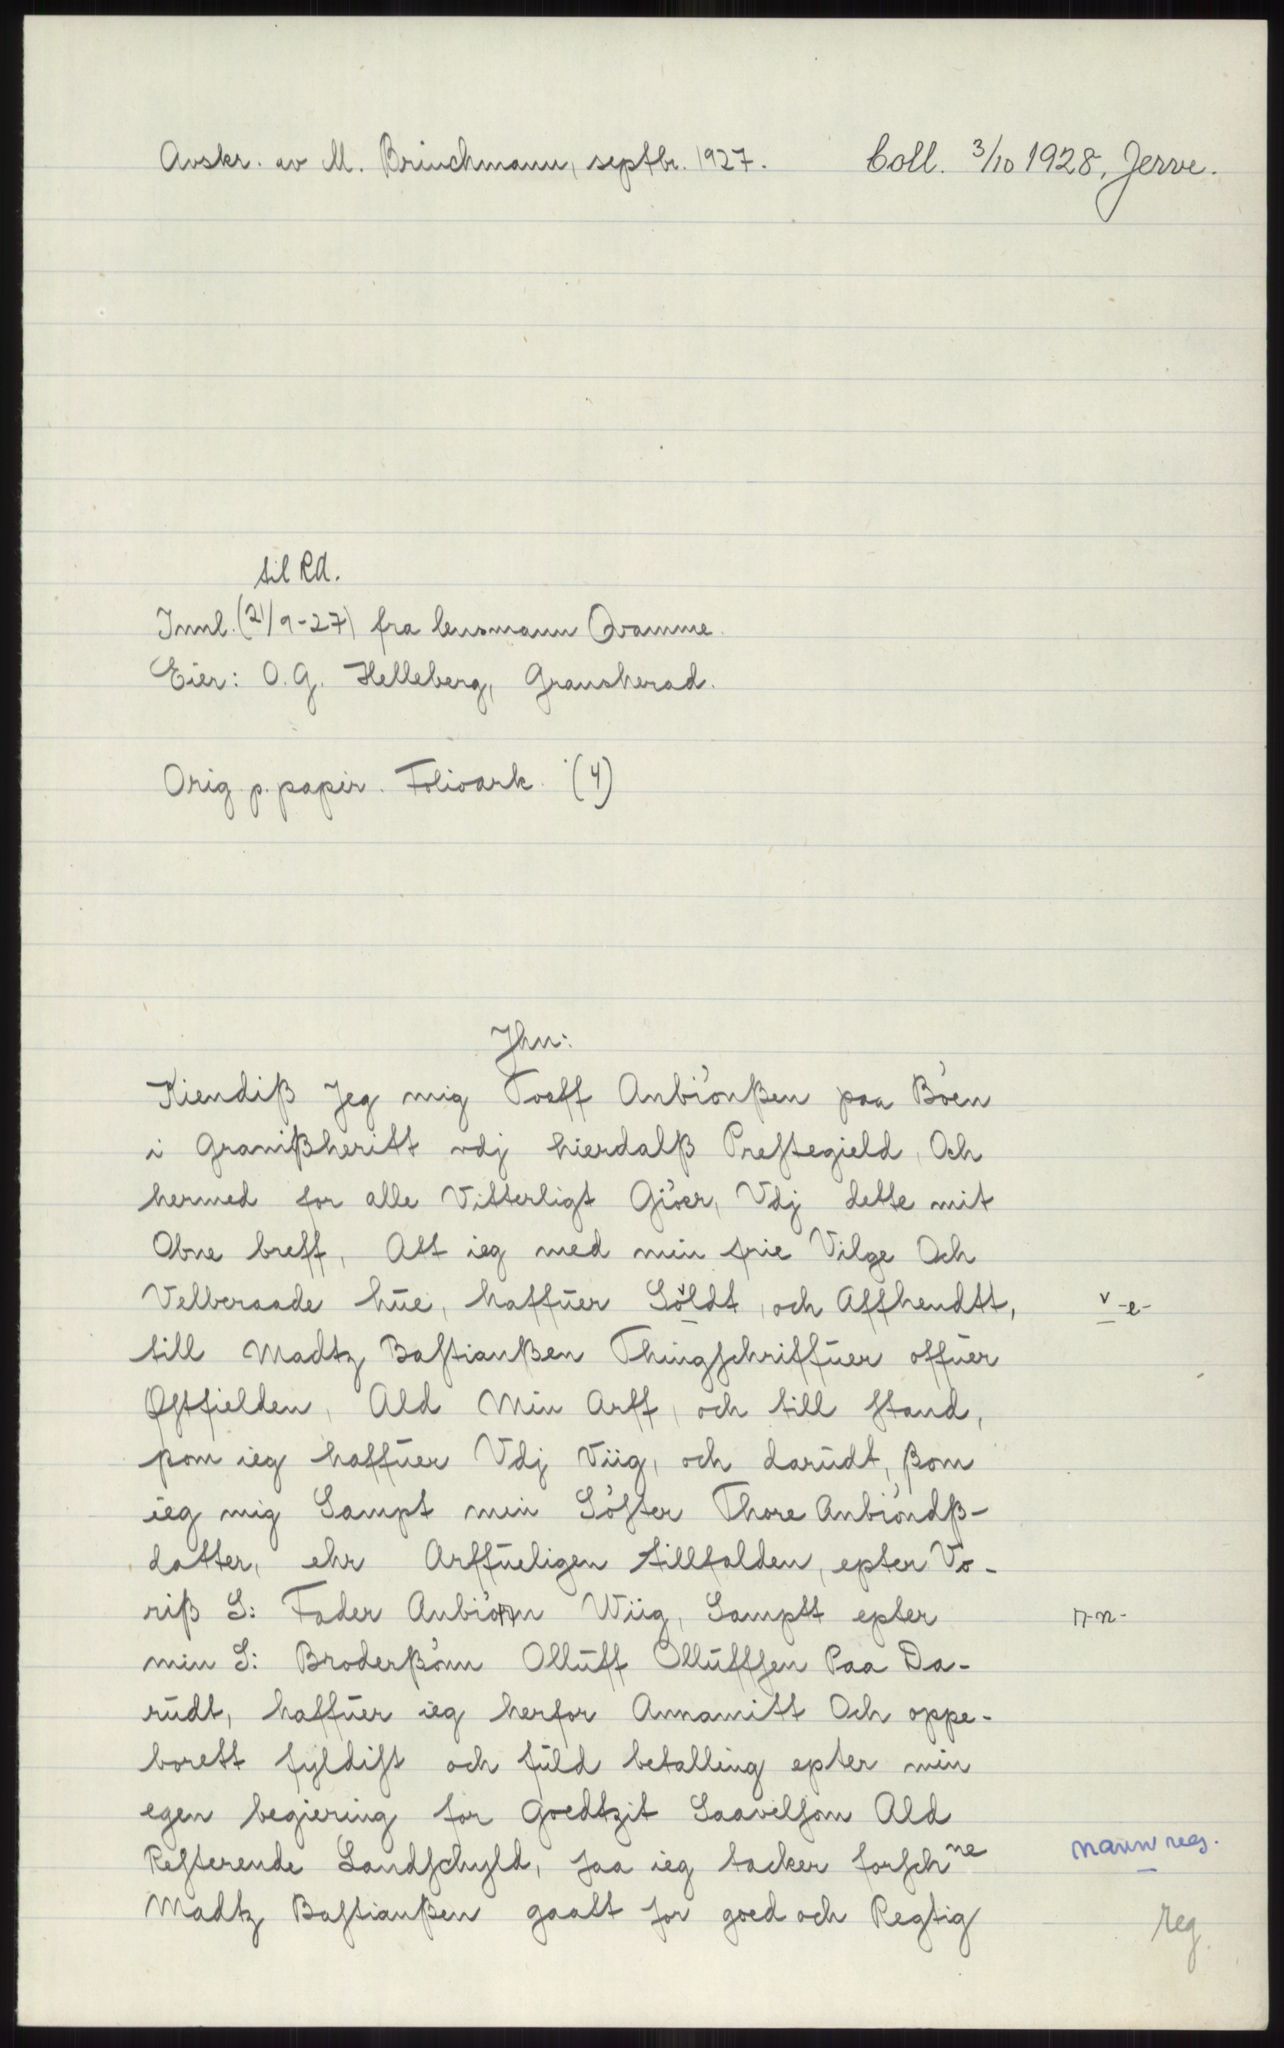 Avskr. av M. Brinchmann, septbr. 1927. Coll. 3/10 1928, Jerve.
til RA.
Innl. (21/9-27) fra lensmann Qvamme.
Eier: O. G. Helleberg, Gransherad.
Orig. p. papir. Folioark. (4)
Jhn:
Kiendiß Jeg mig Toeff Anbiönßen paa Böen
i Granißheritt vdj hierdalß Prestegield, Och
hermed for alle Vitterligt Giöer, Vdj dette mit
Obne breff, Att ieg med min frie Vilge Och
Velberaade hue, haffuer Söldt, och Affhendtt, v -e-
till Madtz Bastianßen Thingschriffuer offuer
Østfielden, Ald Min Arff, och till stand,
ßom ieg haffuer Vdj Viig, och darudt, ßom
ieg mig Sampt min Söster Thore Anbiöndß-
datter, ehr Arffueligen tillfalden, epter Vo-
riß S: Fader Anbiönn Wiig, Samptt epter n-n-
min S: Broderßönn Olluff Olluffsen Paa Da-
rudt, haffuer ieg herfor Annamitt Och oppe-
borett fyldist och fuld betalling epter min
egen begiering for Goedtzit Saavelsom Ald
Resterende Landschyld, saa ieg tacker forschne navnreg.
Madtz Bastianßen gaatt for goed och Regtig reg.